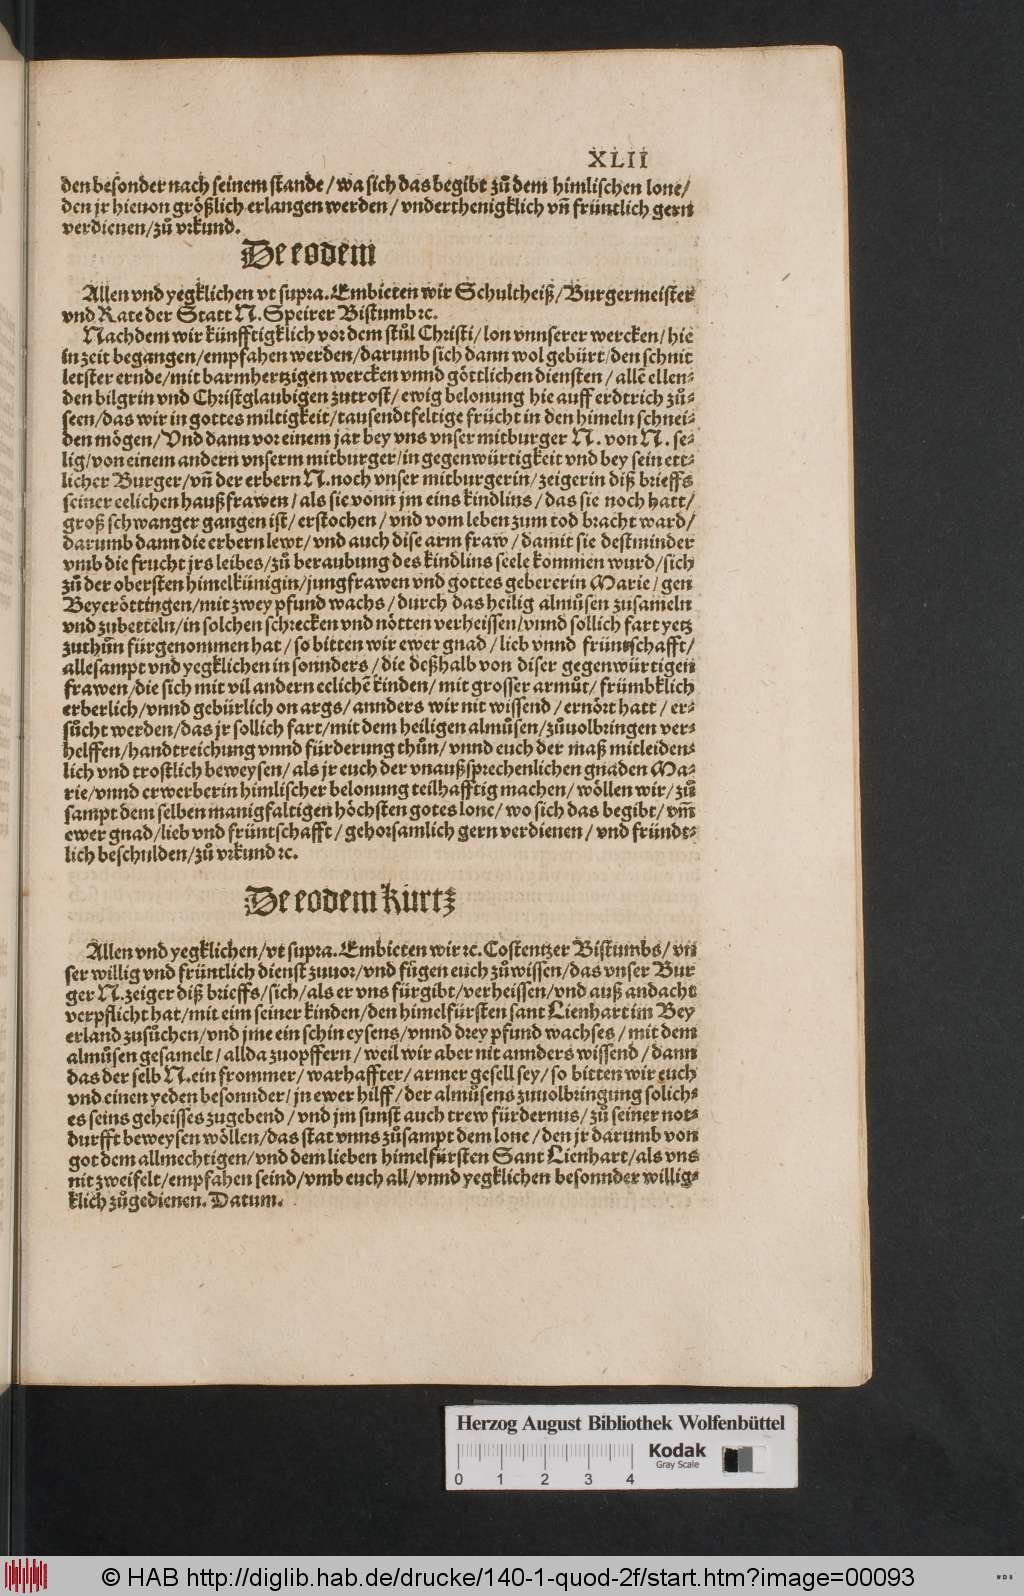 XLII
den besonder nach seinem stande / wa sich das begibt zů dem himlischen lone /
den jr hieuon größlich erlangen werden / vnderthenigklich vñ früntlich gern
verdienen / zů vrkund.
De eodem
Allen vnd yegklichen vt supra. Embieten wir Schultheiß / Burgermeister
vnd Rate der Statt N. Speirer Bistumb ꝛc.
Nachdem wir künfftigklich vor dem stůl Christi / lon vnnserer wercken / hie
in zeit begangen / empfahen werden / darumb sich dann wol gebürt / den schnit
letster ernde / mit barmhertzigen wercken vnnd göttlichen diensten / allẽ ellen⸗
den bilgrin vnd Christglaubigen zutrost / ewig belonung hie auff erdtrich zů⸗
seen / das wir in gottes miltigkeit / tausendtfeltige frücht in den himeln schnei⸗
den mögen / Vnd dann vor einem jar bey vns vnser mitburger N. von N. se⸗
lig / von einem andern vnserm mitburger / in gegenwürtigkeit vnd bey sein ett⸗
licher Burger / vñ der erbern N. noch vnser mitburgerin / zeigerin diß brieffs
seiner eelichen haußfrawen / als sie vonn jm eins kindlins / das sie noch hatt /
groß schwanger gangen ist / erstochen / vnd vom leben zum tod bracht ward /
darumb dann die erbern lewt / vnd auch dise arm fraw / damit sie destminder
vmb die frucht jrs leibes / zů beraubung des kindlins seele kommen wurd / sich
zů der obersten himelkünigin / jungfrawen vnd gottes gebererin Marie / gen
Beyeröttingen / mit zwey pfund wachs / durch das heilig almůsen zusameln
vnd zubetteln / in solchen schrecken vnd nötten verheissen / vnnd sollich fart yetz
zuthůn fürgenommen hat / so bitten wir ewer gnad / lieb vnnd früntschafft /
allesampt vnd yegklichen in sonnders / die deßhalb von diser gegenwürtigen
frawen / die sich mit vil andern eelichẽ kinden / mit grosser armůt / frümbklich
erberlich / vnnd gebürlich on args / annders wir nit wissend / ernört hatt / er⸗
sůcht werden / das jr sollich fart / mit dem heiligen almůsen / zůuolbringen ver⸗
helffen / handtreichung vnnd fürderung thůn / vnnd euch der maß mitleiden⸗
lich vnd trostlich beweysen / als jr euch der vnaußsprechenlichen gnaden Ma⸗
rie / vnnd erwerberin himlischer belonung teilhafftig machen / wöllen wir / zů
sampt dem selben manigfaltigen höchsten gotes lone / wo sich das begibt / vm̃
ewer gnad / lieb vnd früntschafft / gehorsamlich gern verdienen / vnd fründt⸗
lich beschulden / zů vrkund ꝛc.
De eodem kurtz
Allen vnd yegklichen / vt supra. Embieten wir ꝛc. Costentzer Bistumbs / vn
ser willig vnd früntlich dienst zuuor / vnd fügen euch zůwissen / das vnser Bur
ger N. zeiger diß brieffs / sich / als er vns fürgibt / verheissen / vnd auß andacht
verpflicht hat / mit eim seiner kinden / den himelfürsten sant Lienhart im Bey
erland zusůchen / vnd jme ein schin eysens / vnnd drey pfund wachses / mit dem
almůsen gesamelt / allda zuopffern / weil wir aber nit annders wissend / dann
das der selb N. ein frommer / warhaffter / armer gesell sey / so bitten wir euch
vnd einen yeden besonnder / jn ewer hilff / der almůsens zuuolbringung solich⸗
es seins geheisses zugebend / vnd jm sunst auch trew fürdernus / zů seiner not⸗
durfft beweysen wöllen / das stat vnns zůsampt dem lone / den jr darumb von
got dem allmechtigen / vnd dem lieben himelfürsten Sant Lienhart / als vns
nit zweifelt / empfahen seind / vmb euch all / vnnd yegklichen besonnder willig⸗
klich zůgedienen. Datum.
Herzog August Bibliothek Wolfenbüttel
Kodak
Gray Scale
0 1 2 3 4
© HAB http://diglib.hab.de/drucke/140-1-quod-2f/start.htm?image=00093